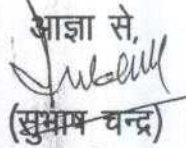 आज्ञा से,
(सुभाष चन्द्र)